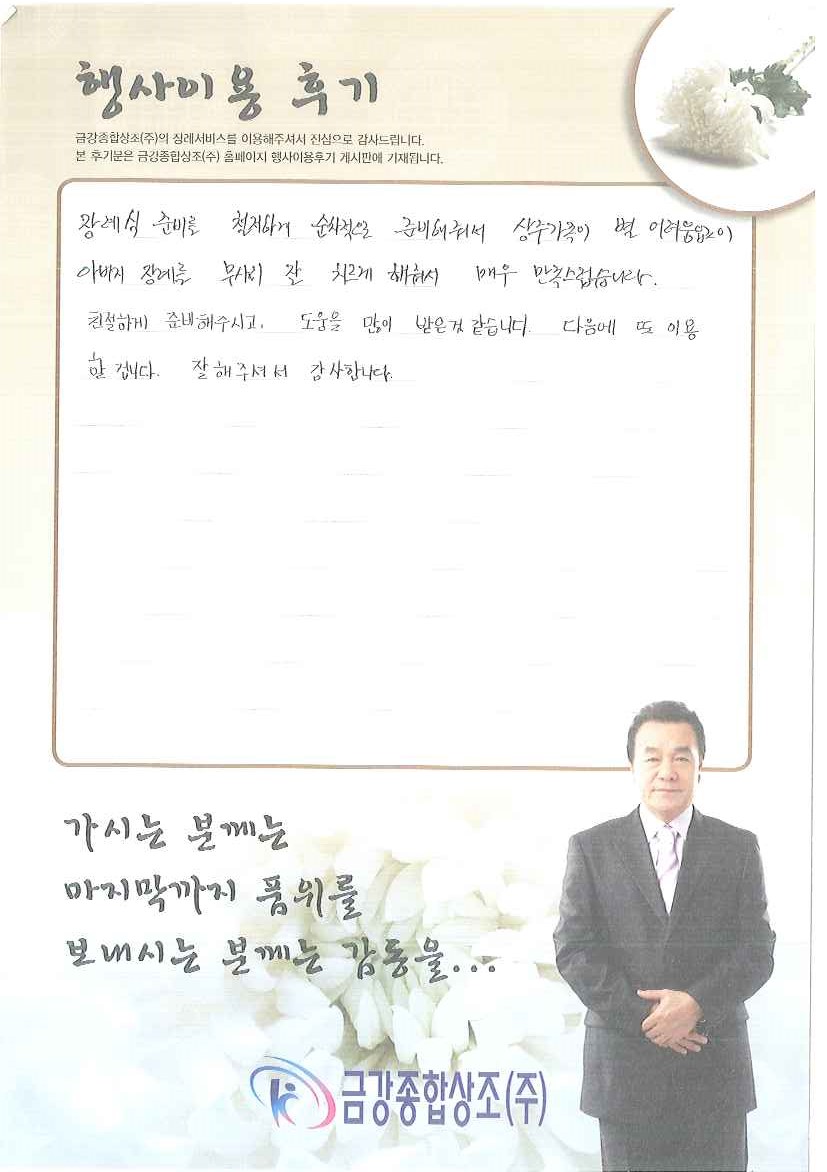 행사이용 후기
금강종합상조(주)의 장례서비스를 이용해주셔서 진심으로 감사드립니다.
본 후기문은 금강종합상조(주) 홈페이지 행사이용후기 게시판에 기재됩니다.
장례식 준비를 철저하게 순차적으로 준비해줘서 상주가족이 별 어려움없이
아버지 장례를 무사히 잘 치르게 해줘서 매우 만족스럽습니다.
친절하게 준비해주시고, 도움을 많이 받은것 같습니다. 다음에 또 이용
할 겁니다. 잘해주셔서 감사합니다.
가시는 분께는
마지막까지 품위를
보내시는 분께는 감동을...
금강종합상조(주)